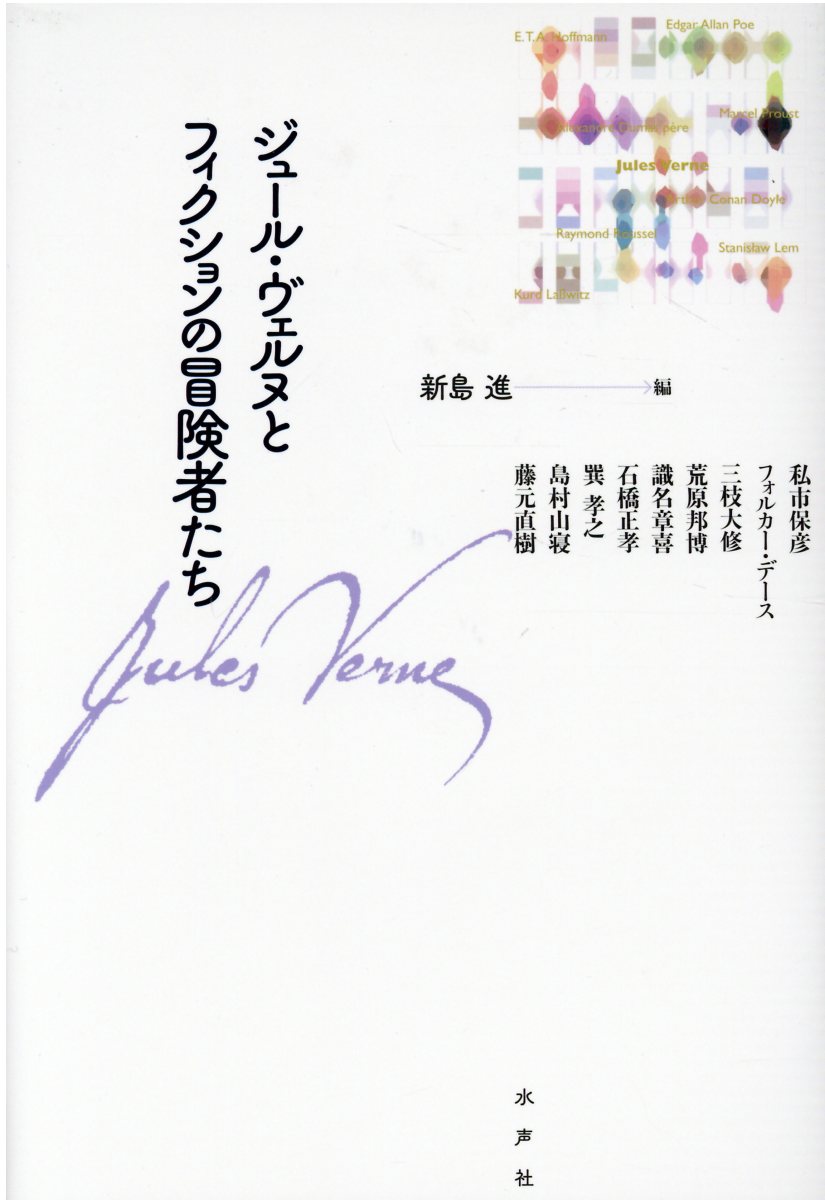 ジュール・ヴェルヌと
フィクションの冒険者たち
E.T.A. Hoffmann
Edgar Allan Poe
Marcel Proust
Alexandre Dumas père
Jules Verne
Arthur Conan Doyle
Raymond Roussel
Stanisław Lem
Kurd Laßwitz
新島 進 編
私市保彦
フォルカー・デース
三枝大修
荒原邦博
識名章喜
石橋正孝
巽 孝之
島村山寝
藤元直樹
Jules Verne
水声社